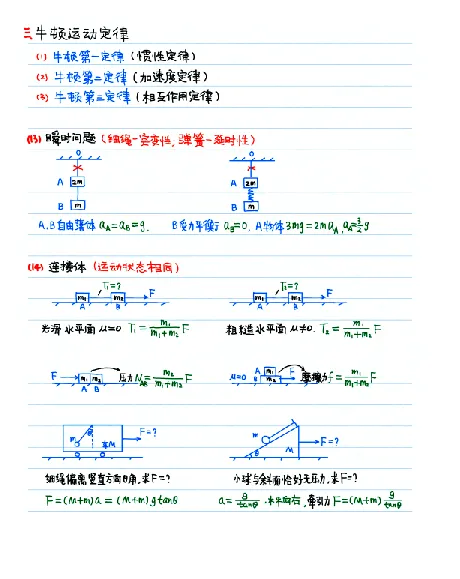 三 牛顿运动定律
(1) 牛顿第一定律 (惯性定律)
(2) 牛顿第二定律 (加速度定律)
(3) 牛顿第三定律 (相互作用定律)
(13) 瞬时问题 (细绳-突变性, 弹簧-延时性)
O O
A 2m A 2m
B m B m
A.B自由落体 a_A=a_B=g. B受力平衡 a_B=0, A物体3mg=2ma_A a_A=3/2 g
(14) 连接体 (运动状态相同)
T₁=? T₂=?
m₁ m₂ F m₁ m₂ F
A B A B
光滑水平面 μ=0 T₁=m₁/(m₁+m₂) F 粗糙水平面 μ≠0. T₂=m₁/(m₁+m₂) F
F m₁ m₂ 压力N_AB=m₂/(m₁+m₂) F μ=0 A m₁ B m₂ F 摩擦力f=m₁/(m₁+m₂) F
A B
m θ 车M F=? m θ M F=?
细绳偏离竖直方向θ角,求F=? 小球与斜面恰好无压力,求F=?
F=(M+m)a=(M+m)gtanθ a=g/tanθ 水平向右, 牵引力F=(M+m) g/tanθ